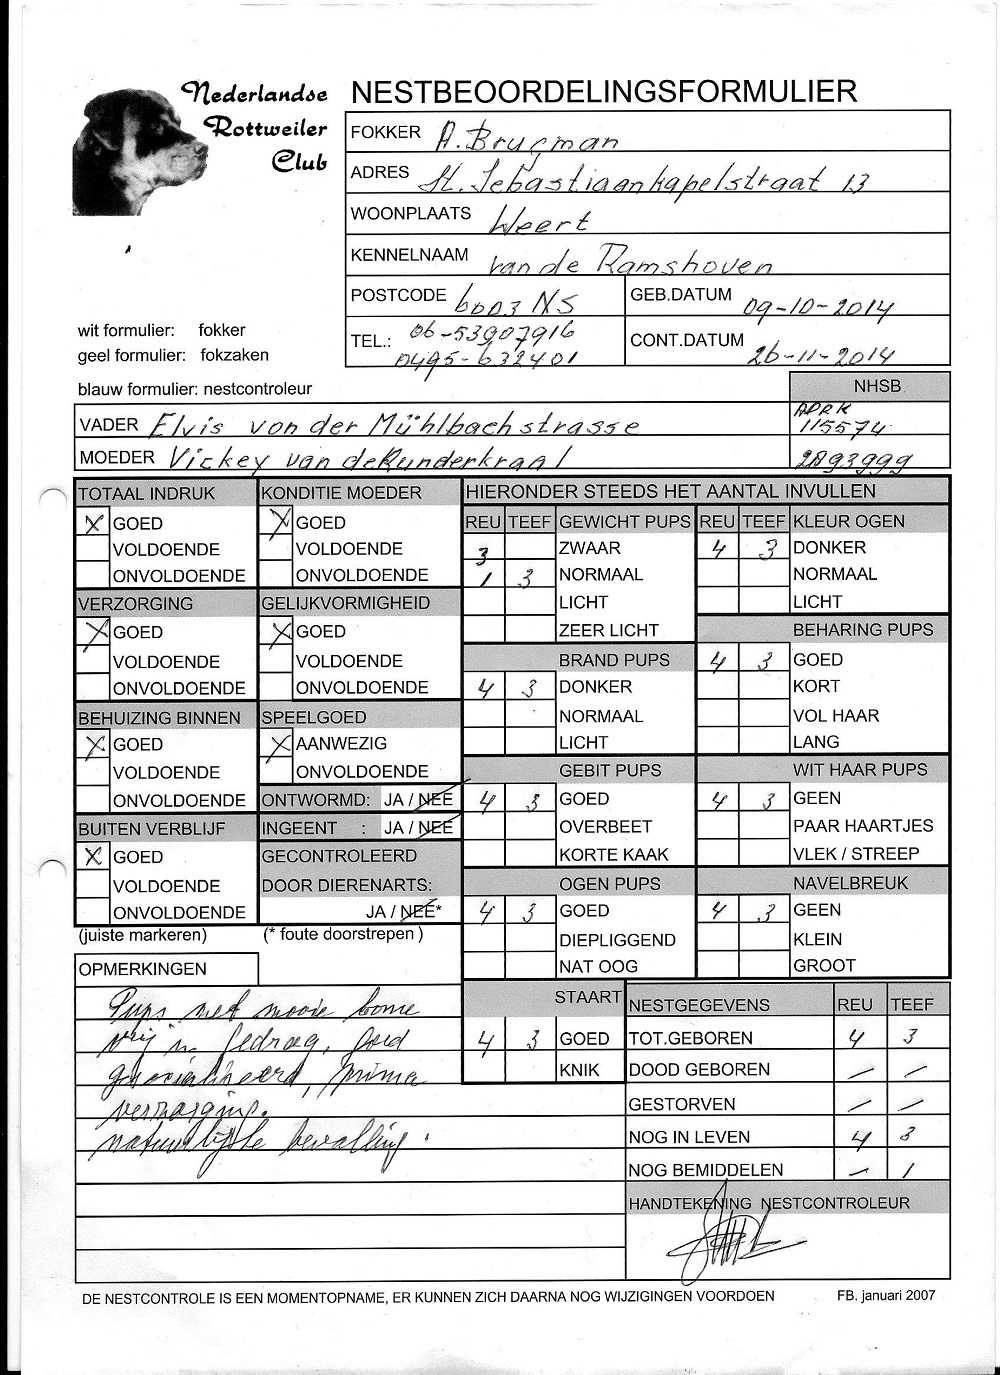 Nederlandse
Rottweiler
Club
NESTBEOORDELINGSFORMULIER
FOKKER A. Brugman
ADRES St. Sebastiaankapelstraat 13
WOONPLAATS Weert
KENNELNAAM van de Ramshoven
POSTCODE 6003 NS GEB.DATUM 09-10-2014
TEL.: 06-53907916
0495-632401
CONT.DATUM 26-11-2014
wit formulier: fokker
geel formulier: fokzaken
blauw formulier: nestcontroleur
NHSB
VADER Elvis von der Mühlbachstrasse ADRK 115574
MOEDER Vickey van de Runderkraal 2893999
TOTAAL INDRUK
X GOED
VOLDOENDE
ONVOLDOENDE
VERZORGING
X GOED
VOLDOENDE
ONVOLDOENDE
BEHUIZING BINNEN
X GOED
VOLDOENDE
ONVOLDOENDE
BUITEN VERBLIJF
X GOED
VOLDOENDE
ONVOLDOENDE
(juiste markeren)
KONDITIE MOEDER
X GOED
VOLDOENDE
ONVOLDOENDE
GELIJKVORMIGHEID
X GOED
VOLDOENDE
ONVOLDOENDE
SPEELGOED
X AANWEZIG
ONVOLDOENDE
ONTWORMD: JA / NEE
INGEENT : JA / NEE
GECONTROLEERD
DOOR DIERENARTS:
JA / NEE*
(* foute doorstrepen )
HIERONDER STEEDS HET AANTAL INVULLEN
REU TEEF GEWICHT PUPS
3 ZWAAR
1 3 NORMAAL
LICHT
ZEER LICHT
BRAND PUPS
4 3 DONKER
NORMAAL
LICHT
GEBIT PUPS
4 3 GOED
OVERBEET
KORTE KAAK
OGEN PUPS
4 3 GOED
DIEPLIGGEND
NAT OOG
STAART
4 3 GOED
KNIK
REU TEEF KLEUR OGEN
4 3 DONKER
NORMAAL
LICHT
BEHARING PUPS
4 3 GOED
KORT
VOL HAAR
LANG
WIT HAAR PUPS
4 3 GEEN
PAAR HAARTJES
VLEK / STREEP
NAVELBREUK
4 3 GEEN
KLEIN
GROOT
OPMERKINGEN
Pups met mooie bome
vrij in gedrag, goed
gesocialiseerd, prima
verzorging.
natuurlijke bevalling.
NESTGEGEVENS REU TEEF
TOT.GEBOREN 4 3
DOOD GEBOREN — —
GESTORVEN — —
NOG IN LEVEN 4 3
NOG BEMIDDELEN — 1
HANDTEKENING NESTCONTROLEUR
DE NESTCONTROLE IS EEN MOMENTOPNAME, ER KUNNEN ZICH DAARNA NOG WIJZIGINGEN VOORDOEN
FB. januari 2007